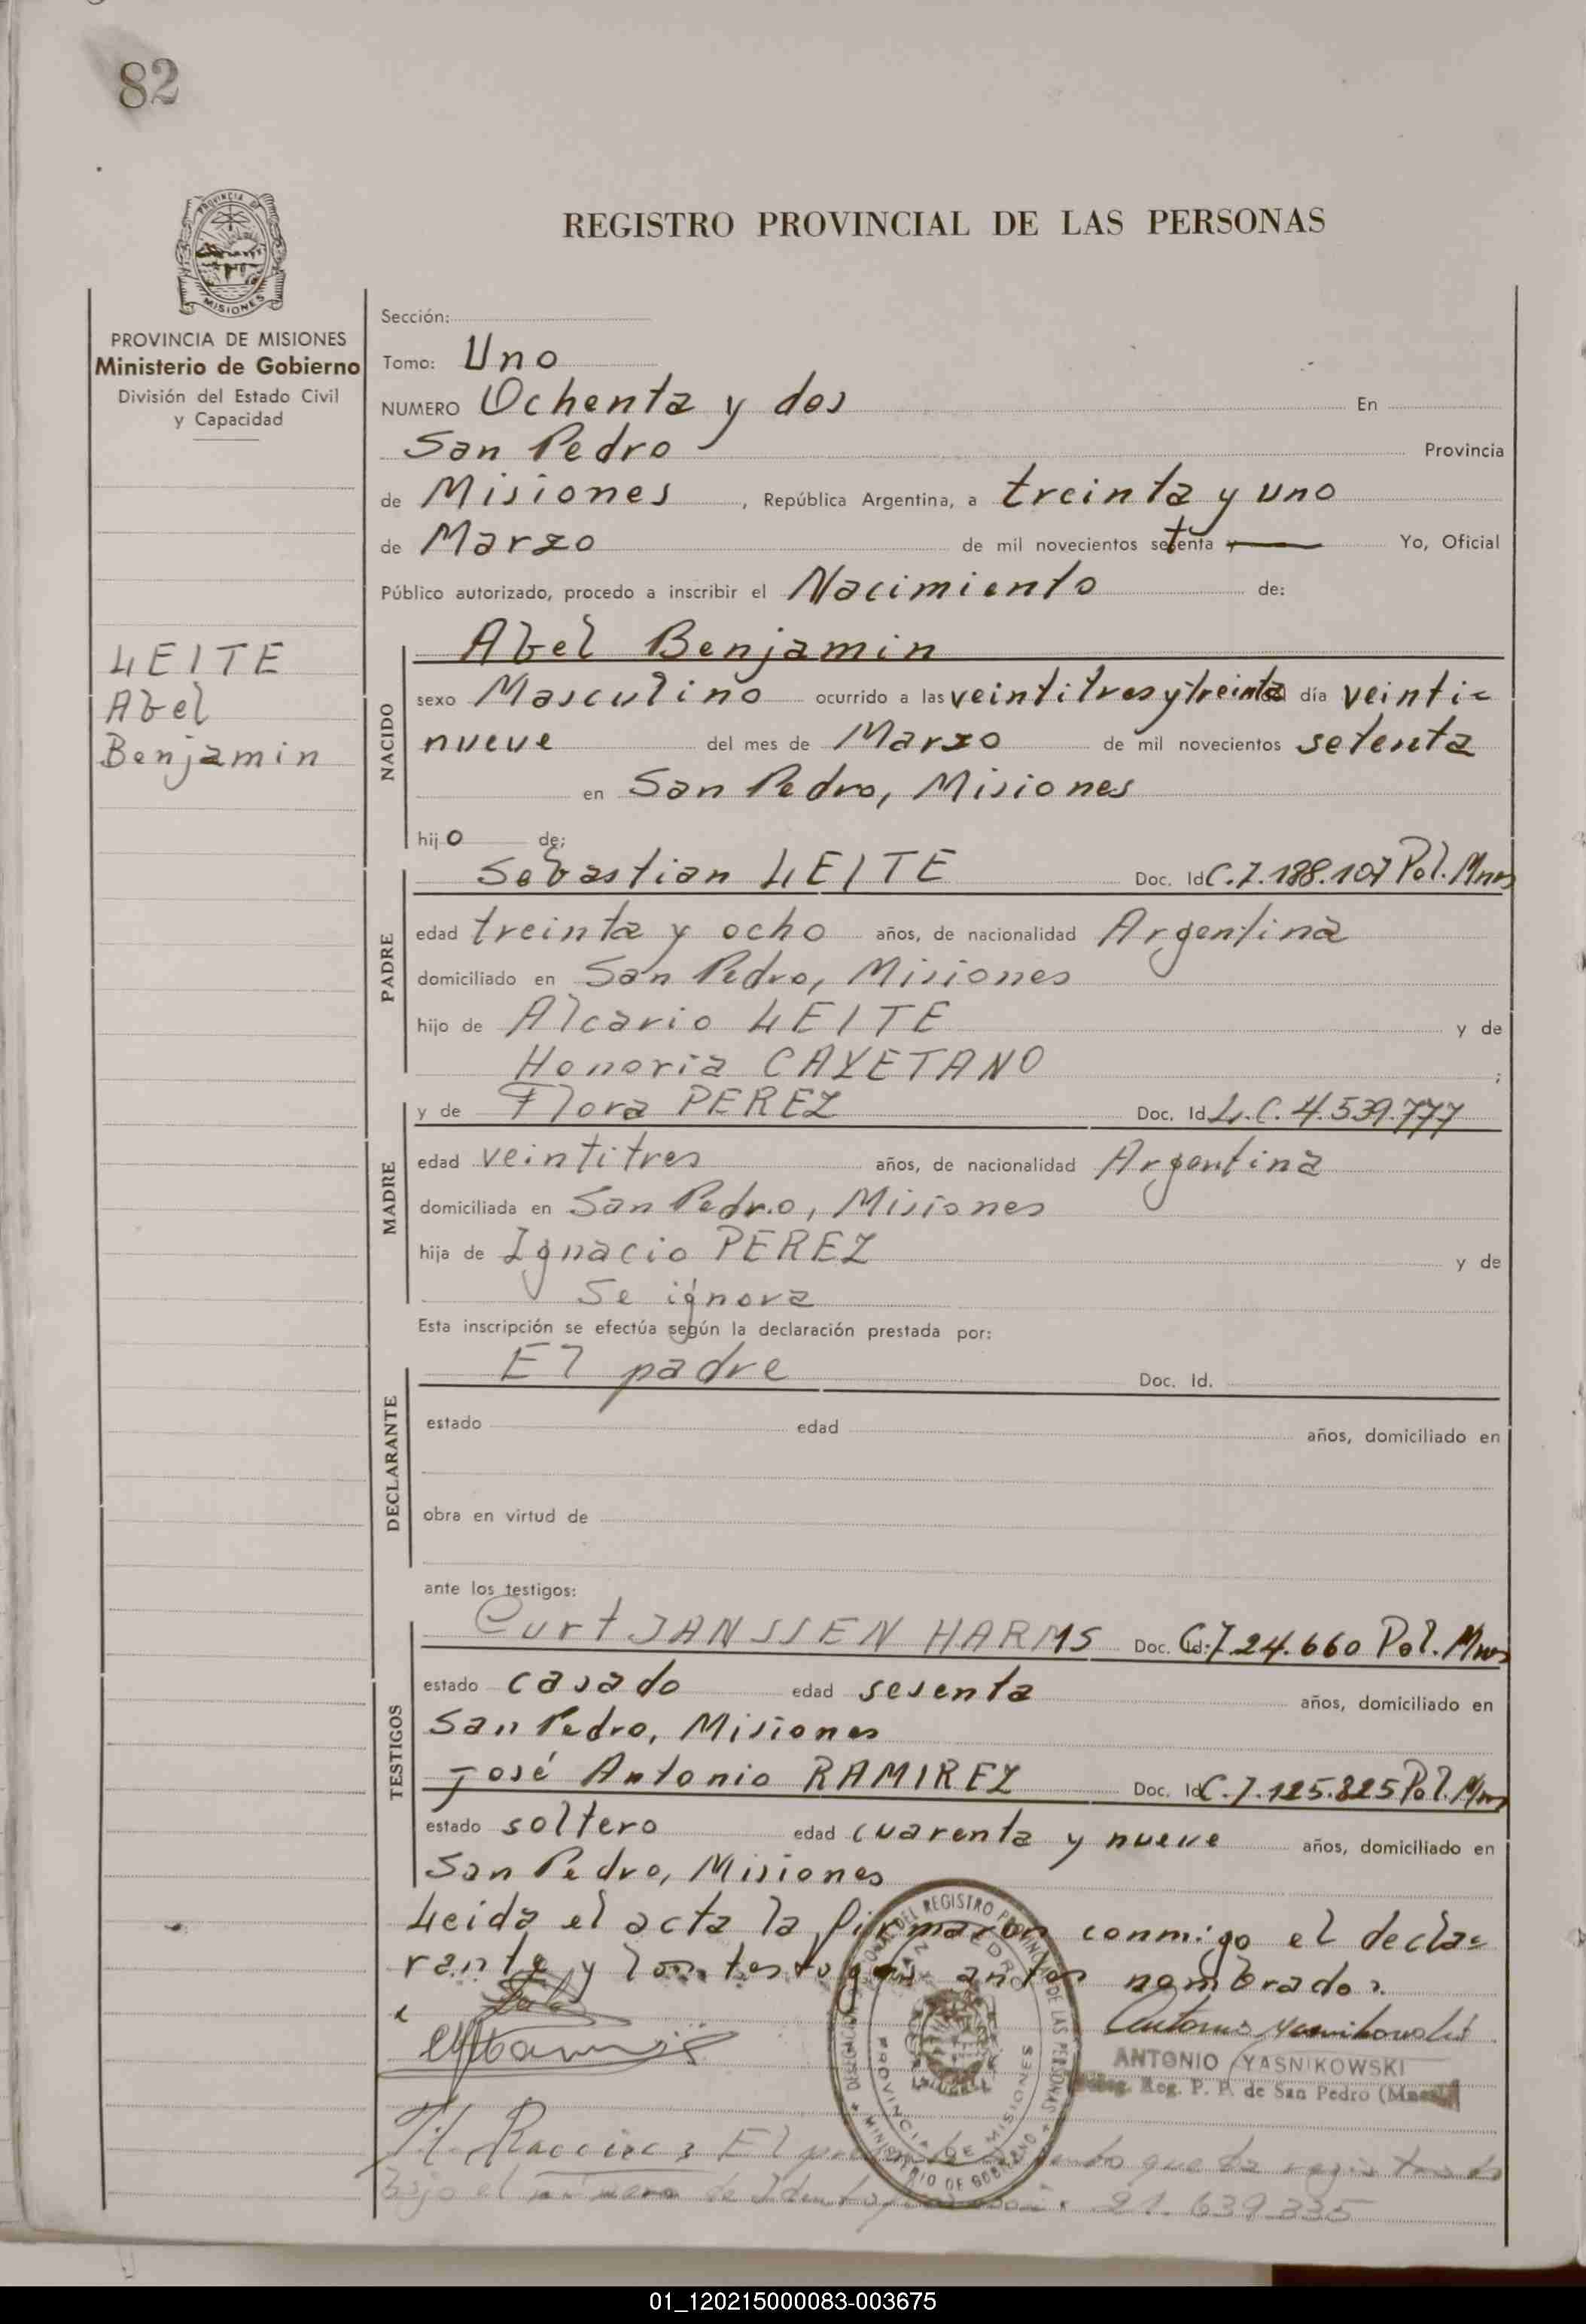 82
PROVINCIA DE
MISIONES
PROVINCIA DE MISIONES
Ministerio de Gobierno
División del Estado Civil
y Capacidad
LEITE
Abel
Benjamin
REGISTRO PROVINCIAL DE LAS PERSONAS
Sección:
Tomo: Uno
NUMERO Ochenta y dos En
San Pedro Provincia
de Misiones, República Argentina, a treinta y uno
de Marzo de mil novecientos setenta Yo, Oficial
Público autorizado, procedo a inscribir el Nacimiento de:
NACIDO
Abel Benjamin
sexo Masculino ocurrido a las veintitres y treinta día veinti=
nueve del mes de Marzo de mil novecientos setenta
en San Pedro, Misiones
hijo de:
PADRE
Sebastian LEITE Doc. Id C.I. 188.107 Pol. Mnes
edad treinta y ocho años, de nacionalidad Argentina
domiciliado en San Pedro, Misiones
hijo de Alcario LEITE y de
Honoria CAYETANO ;
MADRE
y de Flora PEREZ Doc. Id L.C. 4.539.777
edad veintitres años, de nacionalidad Argentina
domiciliada en San Pedro, Misiones
hija de Ignacio PEREZ y de
Se ignora
Esta inscripción se efectúa según la declaración prestada por:
DECLARANTE
El padre Doc. Id.
estado edad años, domiciliado en
obra en virtud de
ante los testigos:
TESTIGOS
Curt JANSSEN HARMS Doc. Id: C.I. 24.660 Pol. Mnes
estado casado edad sesenta años, domiciliado en
San Pedro, Misiones
José Antonio RAMIREZ Doc. Id C.I. 125.825 Pol. Mnes
estado soltero edad cuarenta y nueve años, domiciliado en
San Pedro, Misiones
Leida el acta la firmaron conmigo el decla=
rante y los testigos antes nombrados.
DEL REGISTRO PROVINCIAL DE LAS PERSONAS
SAN PEDRO
PROVINCIA DE MISIONES
MINISTERIO DE GOBIERNO
Antonio Yasnikowski
ANTONIO YASNIKOWSKI
Reg. P. P. de San Pedro (Mnes.)
El que registrado
bajo el número de 21.639.335
01_120215000083-003675